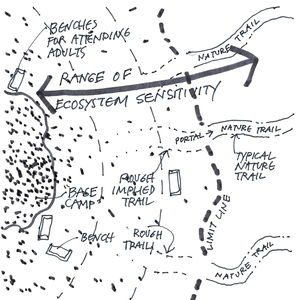 BENCHES
FOR ATTENDING
ADULTS
NATURE TRAIL
RANGE OF
ECOSYSTEM SENSITIVITY
PORTAL
NATURE TRAIL
TYPICAL
NATURE
TRAIL
ROUGH
IMPLIED
TRAIL
BASE
CAMP
BENCH
ROUGH
TRAIL
LIMIT LINE
NATURE TRAIL